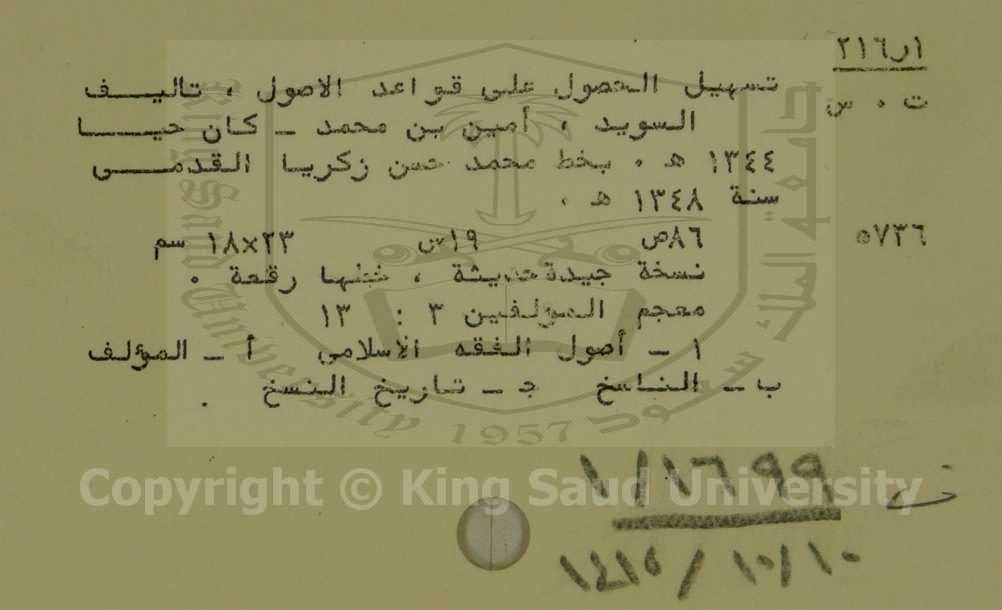 ٢١٦٫١
تسهيل الحصول على قواعد الاصول ، تاليف
ت ٠ س
السويد ، أمين بن محمد ـ كان حيا
١٣٤٤ هـ ٠ بخط محمد حسن زكريا القدمى
سنة ١٣٤٨ هـ ٠
٥٧٣٦
٨٦ص ١٩س ٢٣×١٨ سم
نسخة جيدة حديثة ، خطها رقعة ٠
معجم المولفين ٣ : ١٣
١ ـ أصول الفقه الاسلامى أ ـ المؤلف
ب ـ الناسخ ج ـ تاريخ النسخ ٠
King Saud University 1957
Copyright © King Saud University
١/١٦٩٩
١٤١٥/١٠/١٠